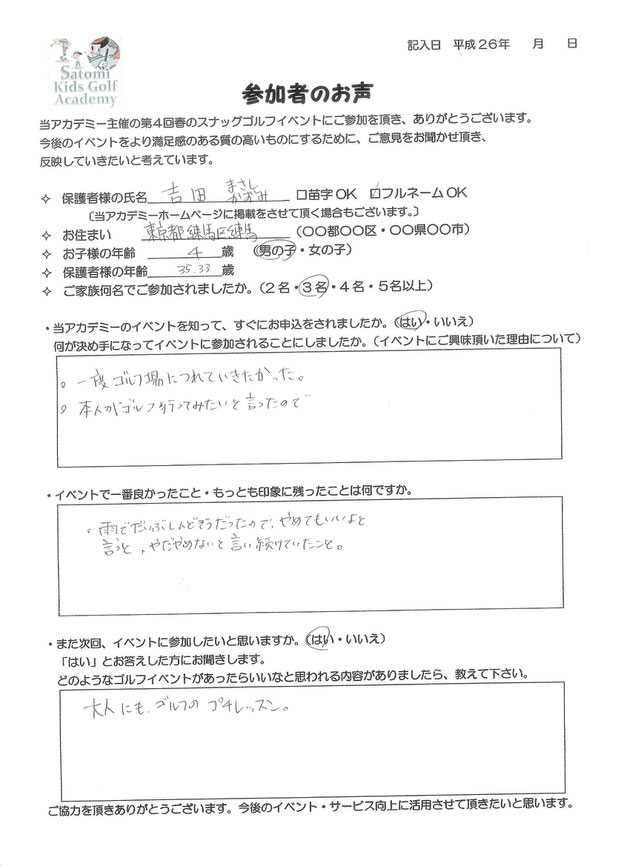 Satomi
Kids Golf
Academy
記入日 平成26年 月 日
参加者のお声
当アカデミー主催の第4回春のスナッグゴルフイベントにご参加を頂き、ありがとうございます。
今後のイベントをより満足感のある質の高いものにするために、ご意見をお聞かせ頂き、
反映していきたいと考えています。
✧ 保護者様の氏名 吉田 まさし かずみ □苗字OK ☑フルネームOK
〔当アカデミーホームページに掲載をさせて頂く場合もございます。〕
✧ お住まい 東京都練馬区練馬 (〇〇都〇〇区・〇〇県〇〇市)
✧ お子様の年齢 4 歳 (男の子・女の子)
✧ 保護者様の年齢 35.33 歳
✧ ご家族何名でご参加されましたか。(2名・3名・4名・5名以上)
・当アカデミーのイベントを知って、すぐにお申込をされましたか。(はい・いいえ)
何が決め手になってイベントに参加されることにしましたか。(イベントにご興味頂いた理由について)
。一度ゴルフ場につれていきたかった。
。本人がゴルフ行ってみたいと言ったので
・イベントで一番良かったこと・もっとも印象に残ったことは何ですか。
・雨でだいぶしんどそうだったので、やめてもいいよと
言うと、やだやめないと言い続けていたこと。
・また次回、イベントに参加したいと思いますか。(はい・いいえ)
「はい」とお答えした方にお聞きします。
どのようなゴルフイベントがあったらいいなと思われる内容がありましたら、教えて下さい。
大人にも、ゴルフのプチレッスン。
ご協力を頂きありがとうございます。今後のイベント・サービス向上に活用させて頂きたいと思います。